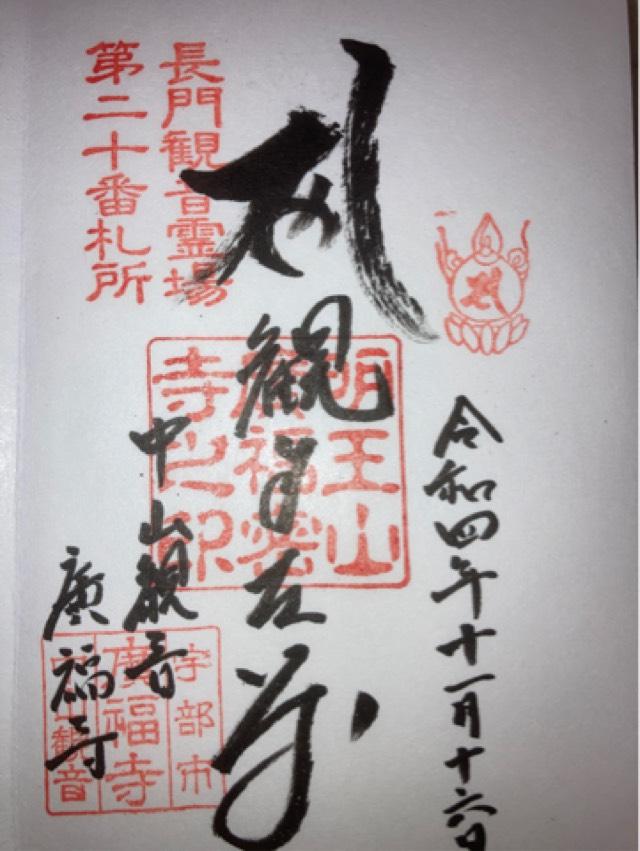 令和四年十一月十六日
観自在尊
長門観音霊場
第二十番札所
明王山
廣福密
寺之印
中山観音
廣福寺
宇部市
廣福寺
中山観音